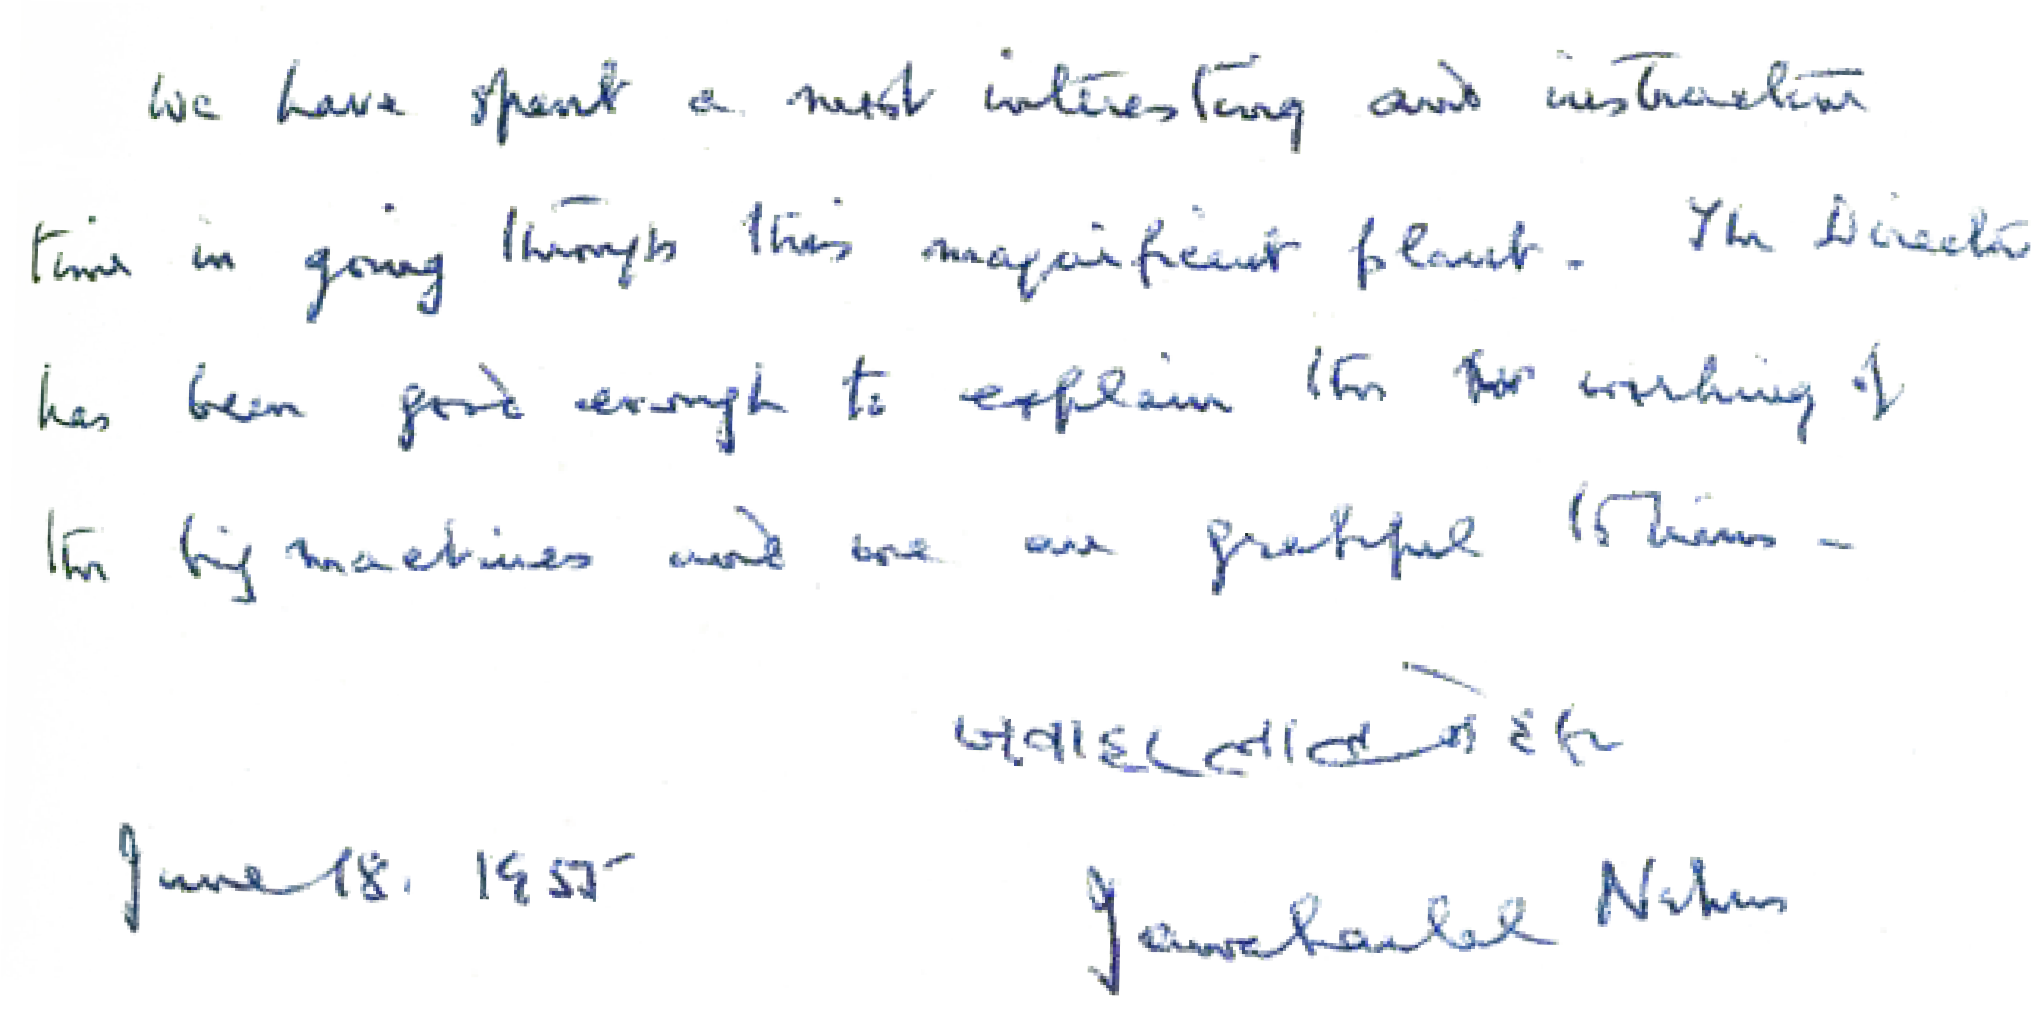 We have spent a most interesting and instructive
time in going through this magnificent plant. The Director
has been good enough to explain the working of
the big machines and we are grateful to him -
जवाहरलाल नेहरू
June 18. 1955
Jawaharlal Nehru